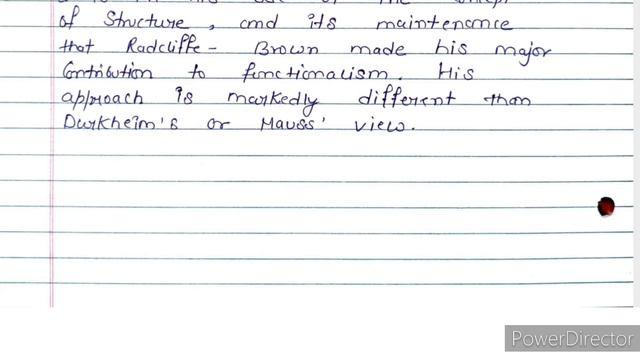 of Structure, and its maintenance
that Radcliffe - Brown made his major
Contribution to functionalism. His
approach is markedly different than
Durkheim's or Mauss' view.
PowerDirector